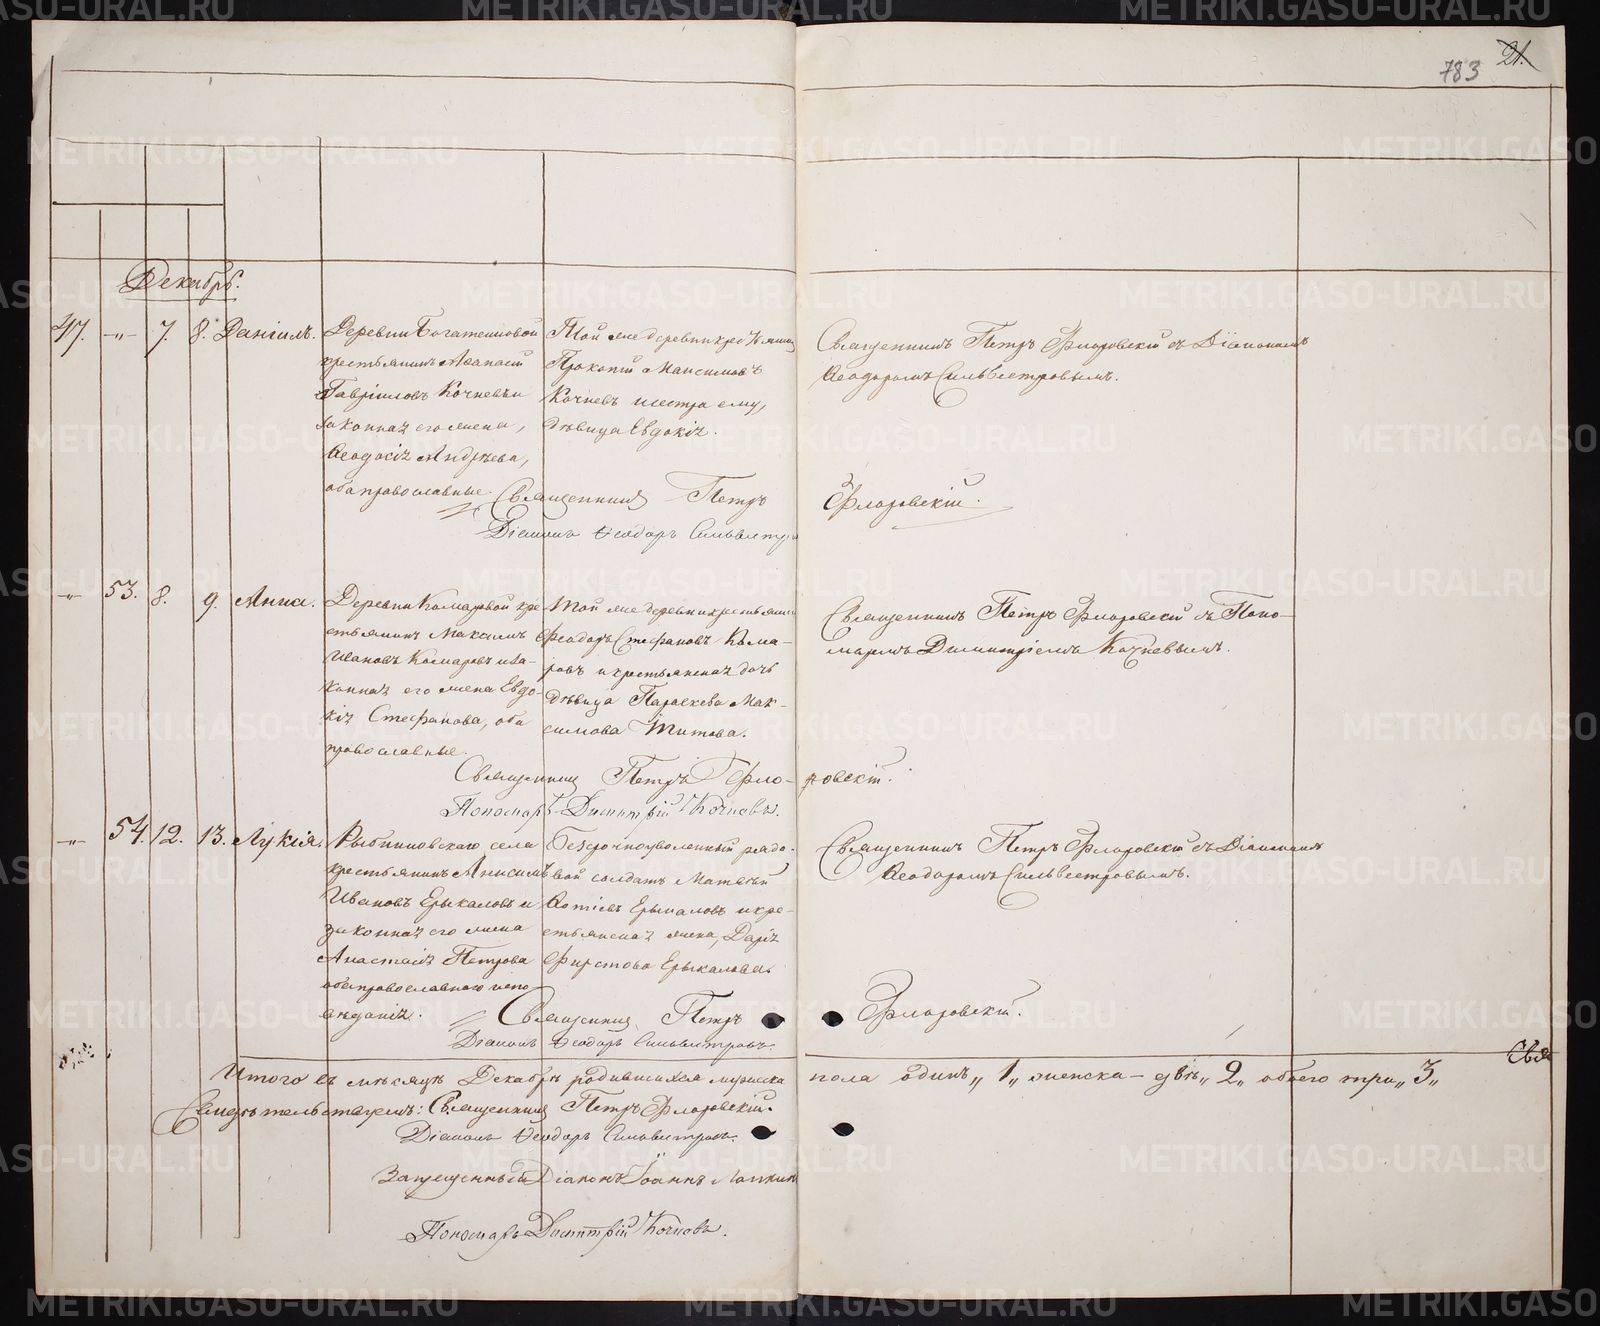 783 21.
Декабрь.
47. —„— 7. 8. Даніилъ.
Деревни Богатенковой
крестьянинъ Аѳанасій
Гавріиловъ Кочневъ и
законная его жена,
Ѳеодосія Андреева,
оба православные.
Той же деревни
Прокопій Максимовъ
Кочневъ и сестра ему,
дѣвица Евдокія.
Священникъ Петръ Флоровскій съ Діакономъ
Ѳеодоромъ Сильвестровымъ.
Священникъ Петръ Флоровскій.
Діаконъ Ѳеодоръ Сильвестровъ
—„— 53. 8. 9. Анна.
Деревни Комаровой кре-
стьянинъ Максимъ
Ивановъ Комаровъ и за-
конная его жена Евдо-
кія Стефанова, оба
православные.
Той же деревни крестьянинъ
Ѳеодоръ Стефановъ Кома-
ровъ и крестьянская дочь
дѣвица Параскева Мак-
симова Титова.
Священникъ Петръ Флоровскій съ Поно-
маремъ Димитріемъ Кочневымъ.
Священникъ Петръ Фло-ровскій.
Пономарь Димитрій Кочневъ.
—„— 54. 12. 13. Лукія.
села
крестьянинъ Анисимъ
Ивановъ Ерыкаловъ и
законная его жена
Анастасія Петрова
оба православнаго испо-
веданія.
Безсрочноуволенный рядо-
вой солдатъ Матвѣй
Ерыкаловъ и кре-
стьянская жена, Дарія
Фирстова Ерыкалова.
Священникъ Петръ Флоровскій съ Діакономъ
Ѳеодоромъ Сильвестровымъ.
Священникъ Петръ Флоровскій.
Діаконъ Ѳеодоръ Сильвестровъ.
Свя
Итого въ мѣсяцѣ Декабрѣ родившихся мужеска пола одинъ „1„ женска — двѣ „2„ обоего три „3„
Свидѣтельствуемъ: Священникъ Петръ Флоровскій.
Діаконъ Ѳеодоръ Сильвестровъ.
Запрещенный Діаконъ Іоаннъ
Пономарь Димитрій Кочневъ.
METRIKI.GASO-URAL.RU